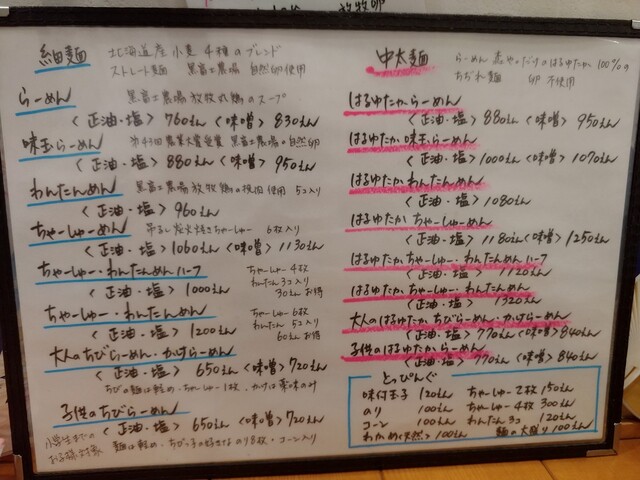 放牧卵
細麺 北海道産小麦4種のブレンド
ストレート麺 黒富士農場 自然卵使用
らーめん 黒富士農場放牧式鶏のスープ
〈正油・塩〉760えん〈味噌〉830えん
味玉らーめん 第43回農業大賞受賞 黒富士農場の自然卵
〈正油・塩〉880えん〈味噌〉950えん
わんたんめん 黒富士農場放牧鶏の挽肉使用 5コ入り
〈正油・塩〉960えん
ちゃーしゅーめん 吊るし炭火焼きちゃーしゅー 6枚入り
〈正油・塩〉1060えん〈味噌〉1130えん
ちゃーしゅー・わんたんめんハーフ ちゃーしゅー4枚
わんたん3コ入り
〈正油・塩〉1000えん 30えんお得
ちゃーしゅー・わんたんめん ちゃーしゅー6枚
わんたん5コ入り
〈正油・塩〉1200えん 60えんお得
大人のちびらーめん・かけらーめん
〈正油・塩〉650えん〈味噌〉720えん
ちびの麺は軽め・ちゃーしゅー1枚、かけは薬味のみ
子供のちびらーめん
〈正油・塩〉650えん〈味噌〉720えん
小学生までのお子様対象 麺は軽め、ちびっ子の好きなのり8枚・コーン入り
中太麺 らーめん 志や・だけのはるゆたか100%の
ちぢれ麺 卵不使用
はるゆたからーめん
〈正油・塩〉880えん〈味噌〉950えん
はるゆたか味玉らーめん
〈正油・塩〉1000えん〈味噌〉1070えん
はるゆたかわんたんめん
〈正油・塩〉1080えん
はるゆたかちゃーしゅーめん
〈正油・塩〉1180えん〈味噌〉1250えん
はるゆたかちゃーしゅー・わんたんめんハーフ
〈正油・塩〉1120えん
はるゆたかちゃーしゅー・わんたんめん
〈正油・塩〉1320えん
大人のはるゆたかちびらーめん・かけらーめん
〈正油・塩〉770えん〈味噌〉840えん
子供のはるゆたからーめん
〈正油・塩〉770えん〈味噌〉840えん
とっぴんぐ
味付玉子 120えん ちゃーしゅー2枚 150えん
のり 100えん ちゃーしゅー4枚 300えん
コーン 100えん わんたん3コ 120えん
わかめ〈天然〉100えん 麺の大盛り 100えん